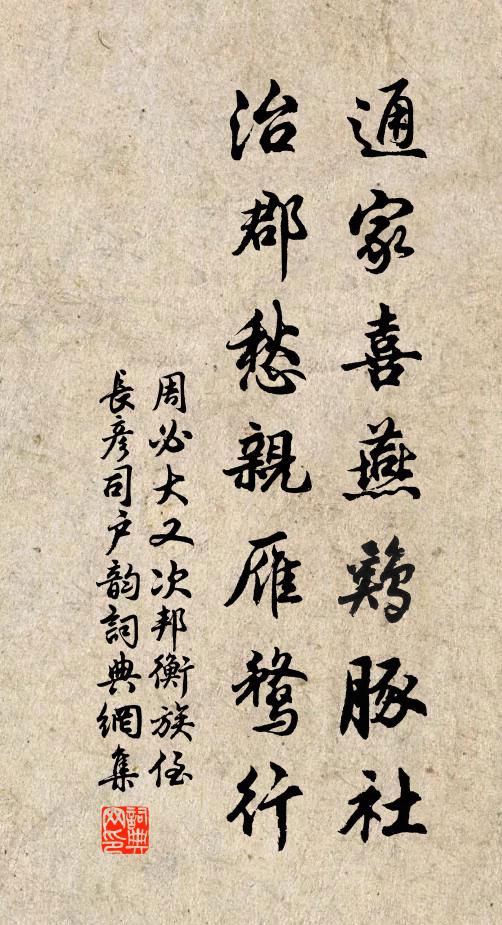 通家喜燕鷄豚社
治郡愁親雁鶩行
周必大又次邦衡族侄
長彦司户韵詞典網集
詞典网印